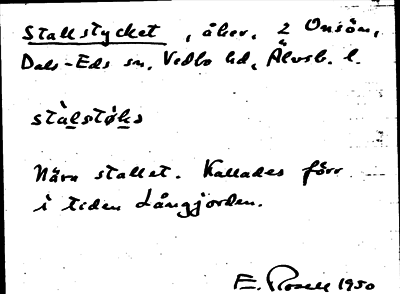 Stallstycket, åker, 2 Onsön,
Dals-Eds sn, Vedbo hd, Älvsb. l.
stàlstøks
Nära stallet. Kallades förr
i tiden Långjorden.
E. Rosell 1950